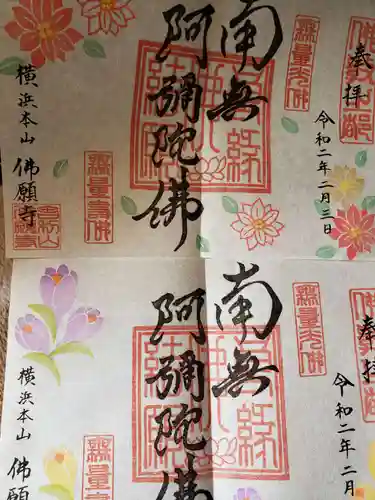 奉拝
無量光佛
南無
阿彌陀佛
令和二年二月三日
無量壽佛
横浜本山 佛願寺
奉拝
無量光佛
南無
阿彌陀佛
令和二年二月
無量
横浜本山 佛願